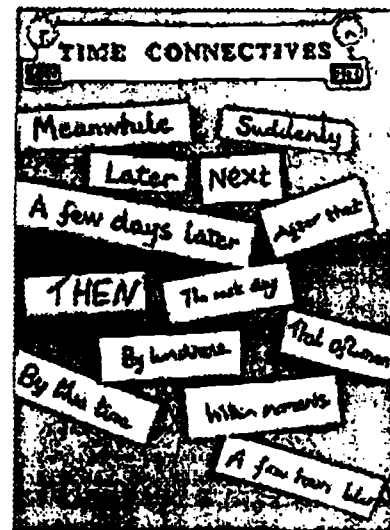 TIME CONNECTIVES
Meanwhile
Suddenly
Later
Next
A few days later
After that
THEN
The next day
By lunchtime
That afternoon
By this time
Within moments
A few hours later